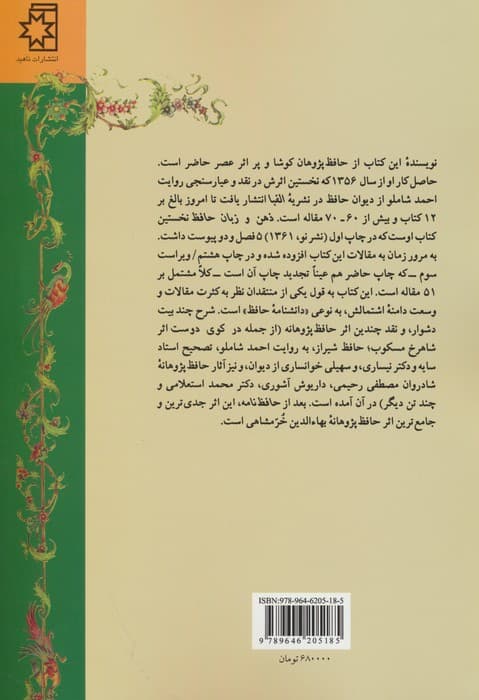 انتشارات ناهید
نویسندهٔ این کتاب از حافظ‌پژوهان کوشا و پر اثر عصر حاضر است.
حاصل کار او از سال ۱۳۵۶ که نخستین اثرش در نقد و عیارسنجی روایت
احمد شاملو از دیوان حافظ در نشریهٔ الفبا انتشار یافت تا امروز بالغ بر
۱۲ کتاب و بیش از ۶۰-۷۰ مقاله است. ذهن و زبان حافظ نخستین
کتاب اوست که در چاپ اول (نشر نو، ۱۳۶۱) ۵ فصل و دو پیوست داشت.
به مرور زمان به مقالات این کتاب افزوده شده و در چاپ هشتم/ ویراست
سوم ــ که چاپ حاضر هم عیناً تجدید چاپ آن است ــ کلاً مشتمل بر
۵۱ مقاله است. این کتاب به قول یکی از منتقدان نظر به کثرت مقالات و
وسعت دامنهٔ اشتمالش، به نوعی «دانشنامهٔ حافظ» است. شرح چند بیت
دشوار، و نقد چندین اثر حافظ‌پژوهانه (از جمله در کوی دوست اثر
شاهرخ مسکوب؛ حافظ شیراز، به روایت احمد شاملو، تصحیح استاد
سایه و دکتر نیساری، و سهیلی خوانساری از دیوان، و نیز آثار حافظ‌پژوهانهٔ
شادروان مصطفی رحیمی، داریوش آشوری، دکتر محمد استعلامی و
چند تن دیگر) در آن آمده است. بعد از حافظ‌نامه، این اثر جدی‌ترین و
جامع‌ترین اثر حافظ‌پژوهانهٔ بهاءالدین خُرّمشاهی است.
ISBN:978-964-6205-18-5
9 789646 205185
۶۸۰۰۰۰ تومان